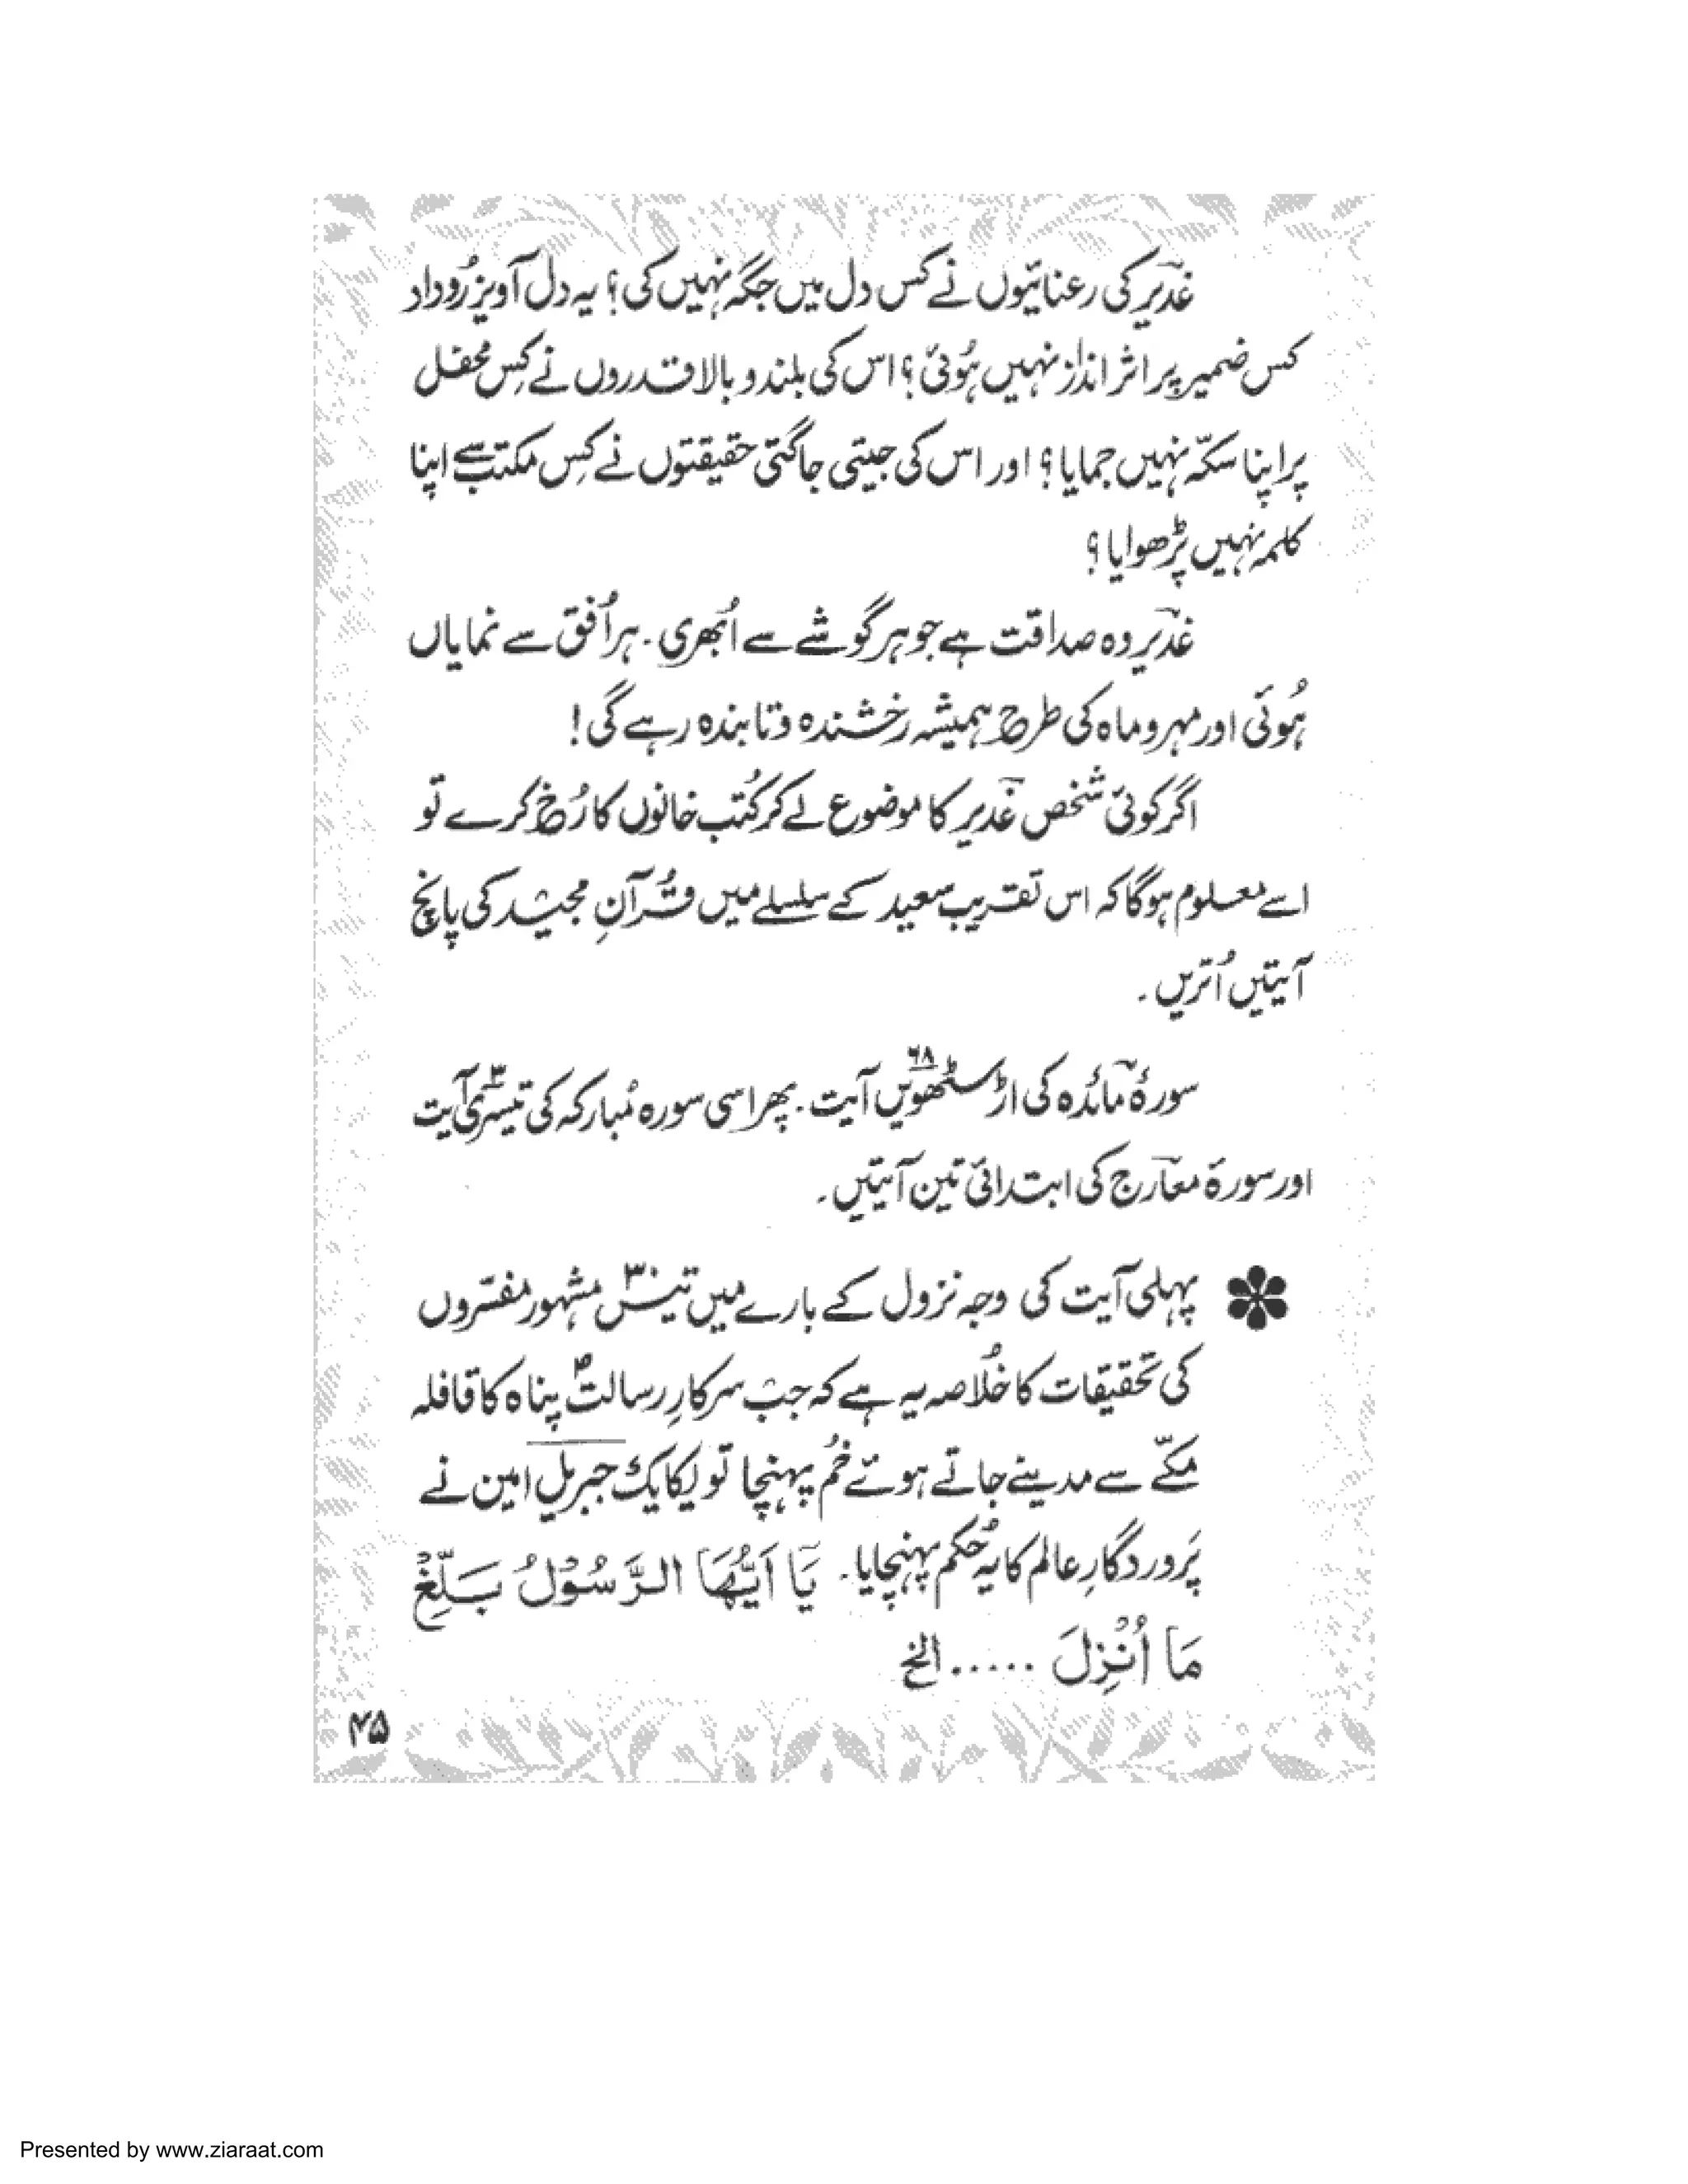 غدیر کی رعنائیوں نے کس دل میں جگہ نہیں کی؟ یہ دل آویز رُوداد
کس ضمیر پر اثر انداز نہیں ہُوئی؟ اس کی بلند و بالا قدروں نے کِس محفل
پر اپنا سکّہ نہیں جمایا؟ اور اس کی جیتی جاگتی حقیقتوں نے کِس مکتب سے اپنا
کلمہ نہیں پڑھوایا؟
غدیر وہ صداقت ہے جو ہر گوشے سے اُبھری۔ ہر اُفق سے نمایاں
ہُوئی اور مہر و ماہ کی طرح ہمیشہ رخشندہ و تابندہ رہے گی!
اگر کوئی شخص غدیر کا موضوع لے کر کُتب خانوں کا رُخ کرے تو
اسے معلوم ہوگا کہ اس تقریب سعید کے سلسلے میں قُرآنِ مجید کی پانچ
آیتیں اُتریں۔
سورۂ مائدہ کی اڑسٹھویں ۶۸ آیت۔ پھر اسی سورہ مُبارکہ کی تیسری ۳ آیت
اور سورۃ معارج کی ابتدائی تین آیتیں۔
✽ پہلی آیت کی وجہ نزول کے بارے میں تیس ۳۰ مشہور مفسّروں
کی تحقیقات کا خُلاصہ یہ ہے کہ جب سرکارِ رسالت پناہ کا قافلہ
مکّے سے مدینے جاتے ہوئے خُم پہنچا تو یکایک جبریلِ امین نے
پَروردگارِ عالم کا یہ حُکم پہنچایا۔ يَآ اَيُّهَا الرَّسُوْلُ بَلِّغْ
مَا اُنْزِلَ ..... الخ
۴۵
Presented by www.ziaraat.com